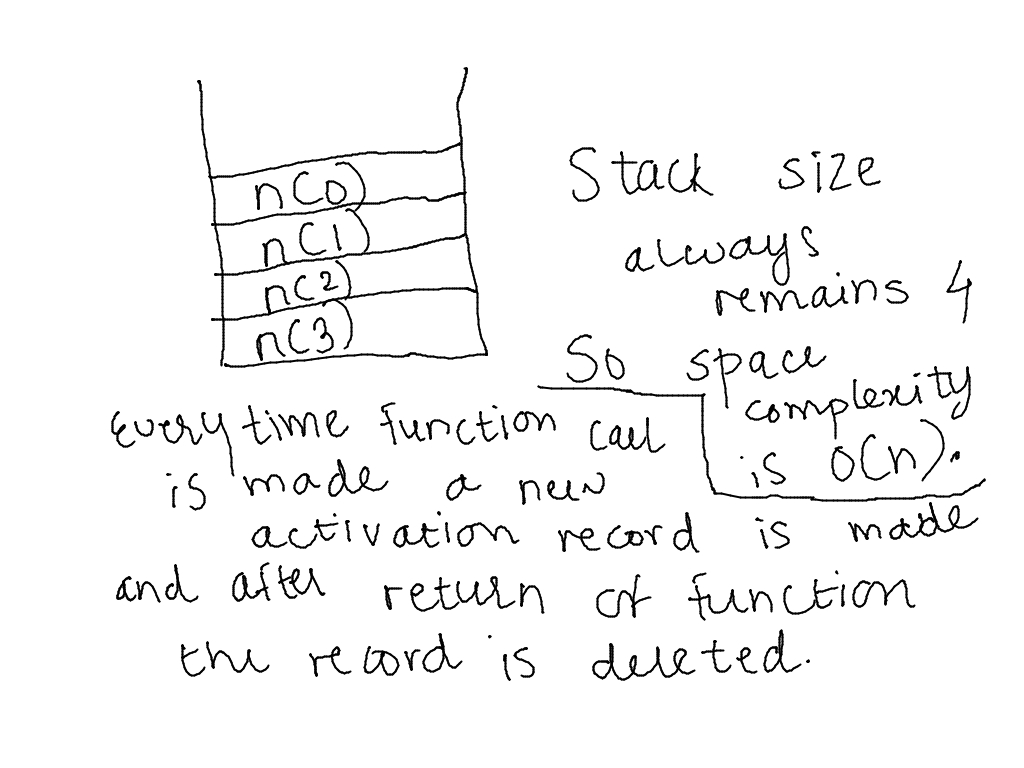 n(0)
n(1)
n(2)
n(3)
Stack size
always
remains 4
So space
complexity
is O(n).
Every time function call
is made a new
activation record is made
and after return of function
the record is deleted.